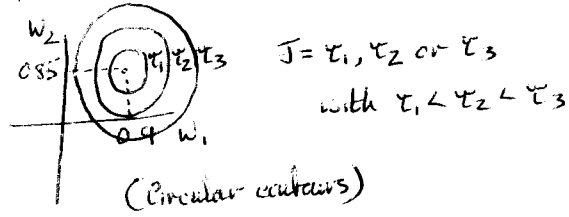 W₂
τ₁ τ₂ τ₃
0.85
J = τ₁, τ₂ or τ₃
with τ₁ < τ₂ < τ₃
0.4 W₁
(Circular contours)